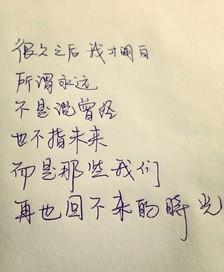 很久之后我才明白
所谓永远
不是说曾经
也不指未来
而是那些我们
再也回不来的時光